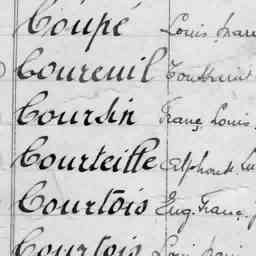 Coupé Louis
Coureuil Toussaint
Coursin Franç Louis
Courteille Alphonse
Courtois Eug. Franç.
Courtois Louis